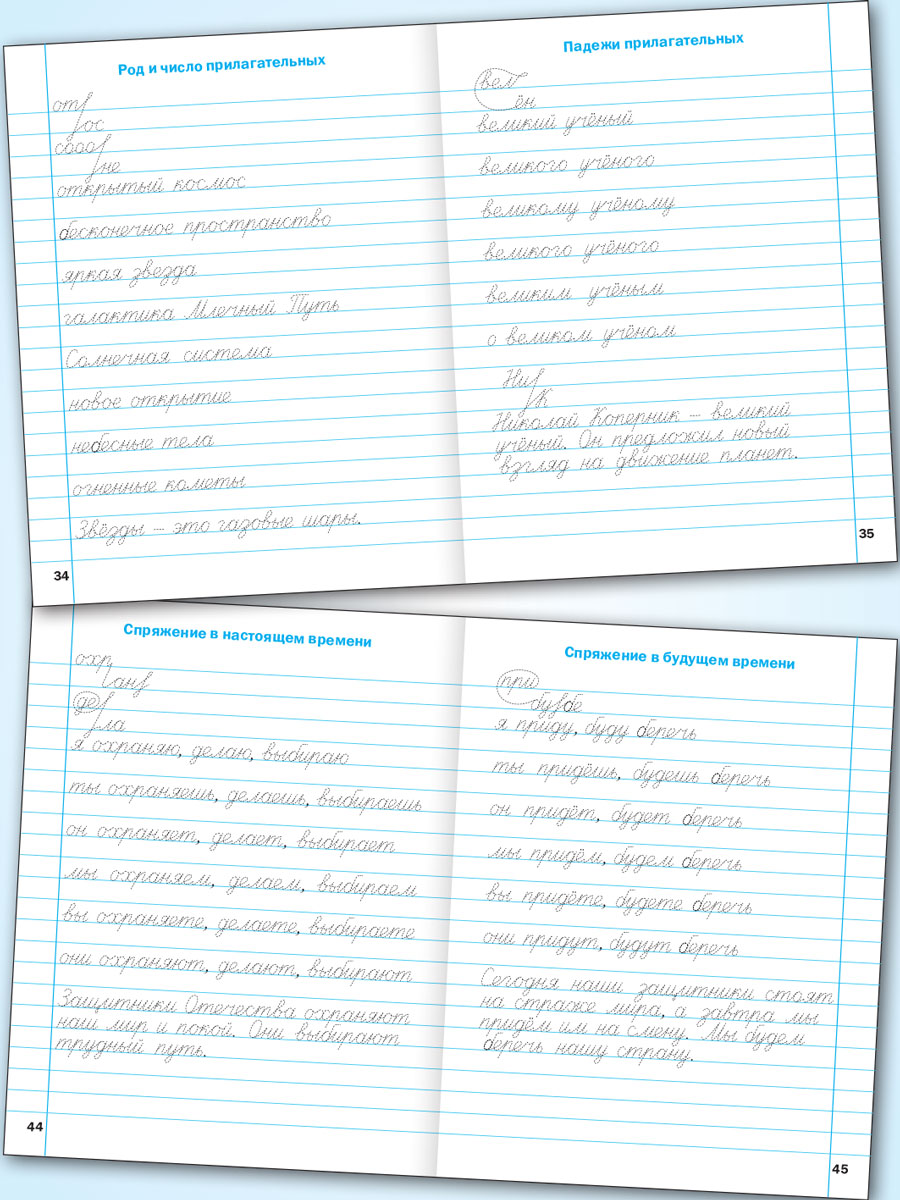 Род и число прилагательных
от
ос
сооо
не
открытый космос
бесконечное пространство
яркая звезда
галактика Млечный Путь
Солнечная система
новое открытие
небесные тела
огненные кометы
Звёзды – это газовые шары.
34
Падежи прилагательных
вел
ён
великий учёный
великого учёного
великому учёному
великого учёного
великим учёным
о великом учёном
Ни
К
Николай Коперник – великий
учёный. Он предложил новый
взгляд на движение планет.
35
Спряжение в настоящем времени
охр
ан
де
ла
я охраняю, делаю, выбираю
ты охраняешь, делаешь, выбираешь
он охраняет, делает, выбирает
мы охраняем, делаем, выбираем
вы охраняете, делаете, выбираете
они охраняют, делают, выбирают
Защитники Отечества охраняют
наш мир и покой. Они выбирают
трудный путь.
44
Спряжение в будущем времени
при
бу бе
я приду, буду беречь
ты придёшь, будешь беречь
он придёт, будет беречь
мы придём, будем беречь
вы придёте, будете беречь
они придут, будут беречь
Сегодня наши защитники стоят
на страже мира, а завтра мы
придём им на смену. Мы будем
беречь нашу страну.
45